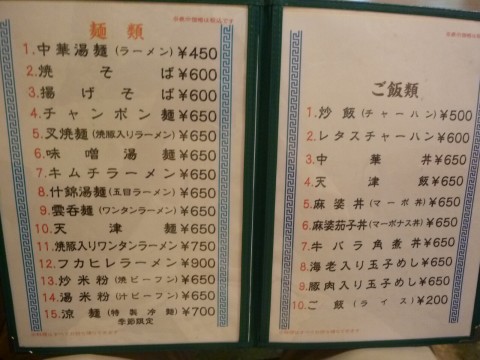 麺類
1.中華湯麺(ラーメン)¥450
2.焼そば¥600
3.揚げそば¥600
4.チャンポン麺¥650
5.叉焼麺(焼豚入りラーメン)¥650
6.味噌湯麺¥650
7.キムチラーメン¥650
8.什錦湯麺(五目ラーメン)¥650
9.雲呑麺(ワンタンラーメン)¥650
10.天津麺¥650
11.焼豚入りワンタンラーメン¥750
12.フカヒレラーメン¥900
13.炒米粉(焼ビーフン)¥650
14.湯米粉(汁ビーフン)¥650
15.涼麺(特製冷麺)¥700
季節限定
ご飯類
1.炒飯(チャーハン)¥500
2.レタスチャーハン¥600
3.中華丼¥650
4.天津飯¥650
5.麻婆丼(マーボ丼)¥650
6.麻婆茄子丼(マーボナス丼)¥650
7.牛バラ角煮丼¥650
8.海老入り玉子めし¥650
9.豚肉入り玉子めし¥650
10.ご飯(ライス)¥200